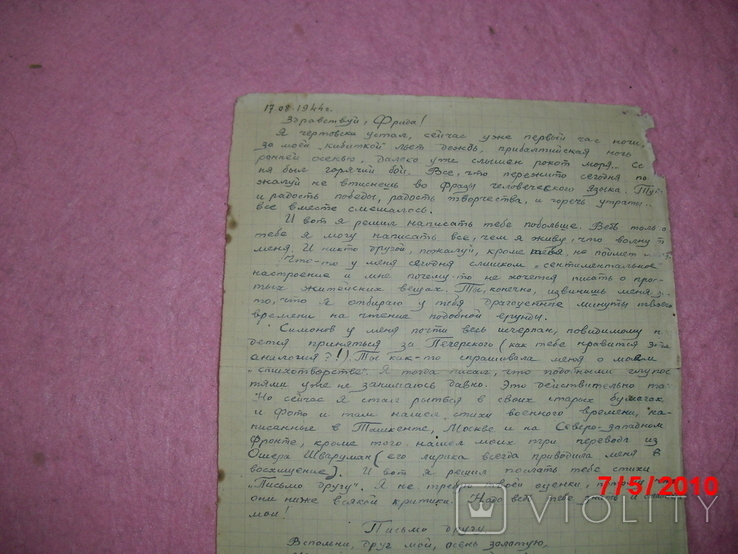 17.08.1944г.
Здравствуй, Фрида!
Я чертовски устал, сейчас уже первый час ночи,
за моей кибиткой льет дождь, прибалтийская ночь
ранней осенью, далеко уже слышен рокот моря... Се
ня был горячий бой. Все, что пережито сегодня по
жалуй не впишешь во фразы человеческого языка. Тут
и радость победы, радость творчества, и горечь утраты...
все вместе смешалось.
И вот я решил написать тебе побольше. Ведь только
тебе я могу написать все, чем я живу, что волну
меня. И никто другой, пожалуй, кроме тебя, не поймет
Что-то у меня сегодня слишком сентиментальное
настроение и мне почему-то не хочется писать о про-
стых житейских вещах. Ты, конечно, извинишь меня
то, что я отбираю у тебя драгоценные минуты твоего
времени на чтение подобной ерунды.
Симонов у меня почти весь исчерпан, повидимому п
дется приняться за Печерского (как тебе нравится эта
аналогия?!). Ты как-то спрашивала меня о моем
стихотворстве. Я тогда писал, что подобными глупос
тями уже не занимаюсь давно. Это действительно та
Но сейчас я стал рыться в своих старых бумагах
и фото и там нашел стихи военного времени, на-
писанные в Ташкенте, Москве и на Северо-западном
фронте, кроме того нашел моих три перевода из
Ошера Шварцман (его лирика всегда приводила меня в
восхищение). И вот я решил послать тебе стихи
"Письмо другу". Я не требую твоей оценки,
они ниже всякой критики. Надо вот тебе
мои!
Письмо другу.
Вспомни, друг мой, осень золотую,
7/5/2010
VIOLITY